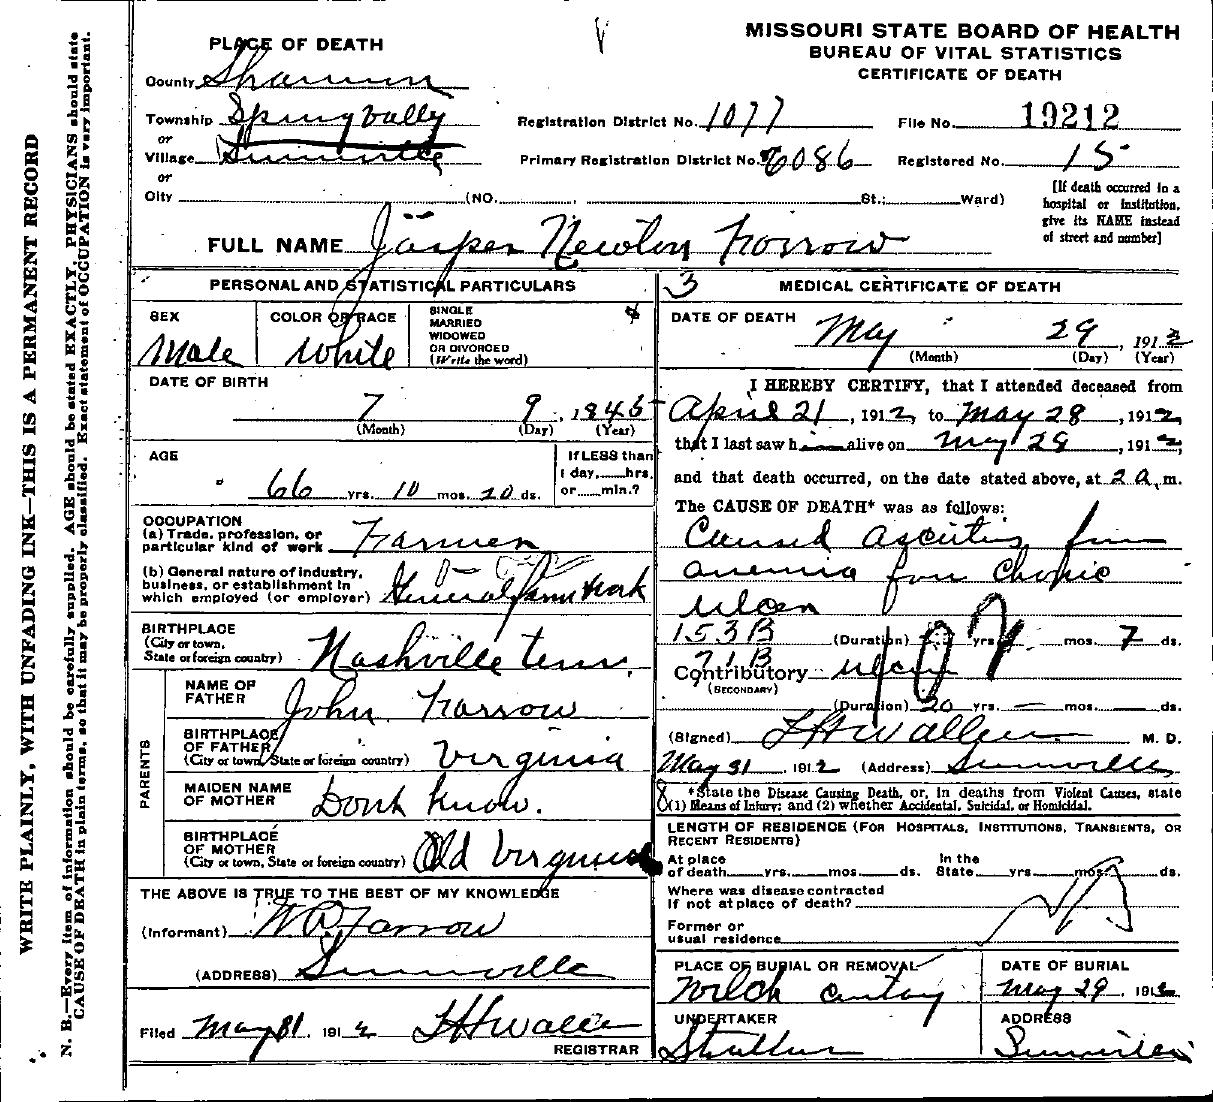 WRITE PLAINLY, WITH UNFADING INK—THIS IS A PERMANENT RECORD
N. B.—Every item of information should be carefully supplied. AGE should be stated EXACTLY. PHYSICIANS should state
CAUSE OF DEATH in plain terms, so that it may be properly classified. Exact statement of OCCUPATION is very important.
MISSOURI STATE BOARD OF HEALTH
BUREAU OF VITAL STATISTICS
CERTIFICATE OF DEATH
PLACE OF DEATH
County Shannon
Township Spring Vally
or
Village Summville
or
City (NO. St.; Ward)
Registration District No. 1077 File No. 19212
Primary Registration District No. 6086 Registered No. 15
[If death occurred in a
hospital or institution,
give its NAME instead
of street and number]
FULL NAME Jasper Newton Farrow
PERSONAL AND STATISTICAL PARTICULARS
SEX
Male
COLOR OR RACE
White
SINGLE
MARRIED
WIDOWED
OR DIVORCED
(Write the word)
DATE OF BIRTH
7 9, 1845
(Month) (Day) (Year)
AGE
66 yrs. 10 mos. 20 ds.
If LESS than
1 day,......hrs.
or......min.?
OCCUPATION
(a) Trade, profession, or
particular kind of work Farmer
(b) General nature of industry,
business, or establishment in
which employed (or employer) General farm work
BIRTHPLACE
(City or town,
State or foreign country) Nashville Tenn
PARENTS
NAME OF
FATHER John Farrow
BIRTHPLACE
OF FATHER
(City or town, State or foreign country) Virginia
MAIDEN NAME
OF MOTHER Dont Know.
BIRTHPLACE
OF MOTHER
(City or town, State or foreign country) Old Virginia
THE ABOVE IS TRUE TO THE BEST OF MY KNOWLEDGE
(Informant) Farrow
(ADDRESS) Summville
Filed May 31, 1912
REGISTRAR
3 MEDICAL CERTIFICATE OF DEATH
DATE OF DEATH May 29, 1912
(Month) (Day) (Year)
I HEREBY CERTIFY, that I attended deceased from
April 21, 1912, to May 28, 1912,
that I last saw him alive on May 29, 1912,
and that death occurred, on the date stated above, at 2 a. m.
The CAUSE OF DEATH* was as follows:
Caused from
anemia
ulcer
153B (Duration) yrs. mos. 7 ds.
71B
Contributory ulcer
(SECONDARY)
(Duration) 20 yrs. — mos. ds.
(Signed) M. D.
May 31, 1912 (Address) Summville
*State the Disease Causing Death, or, in deaths from Violent Causes, state
(1) Means of Injury; and (2) whether Accidental, Suicidal, or Homicidal.
LENGTH OF RESIDENCE (FOR HOSPITALS, INSTITUTIONS, TRANSIENTS, OR
RECENT RESIDENTS)
At place
of death......yrs.......mos.......ds.
In the
State......yrs.......mos.......ds.
Where was disease contracted
If not at place of death?
Former or
usual residence
PLACE OF BURIAL OR REMOVAL
Welch
DATE OF BURIAL
May 29, 1912
UNDERTAKER
ADDRESS